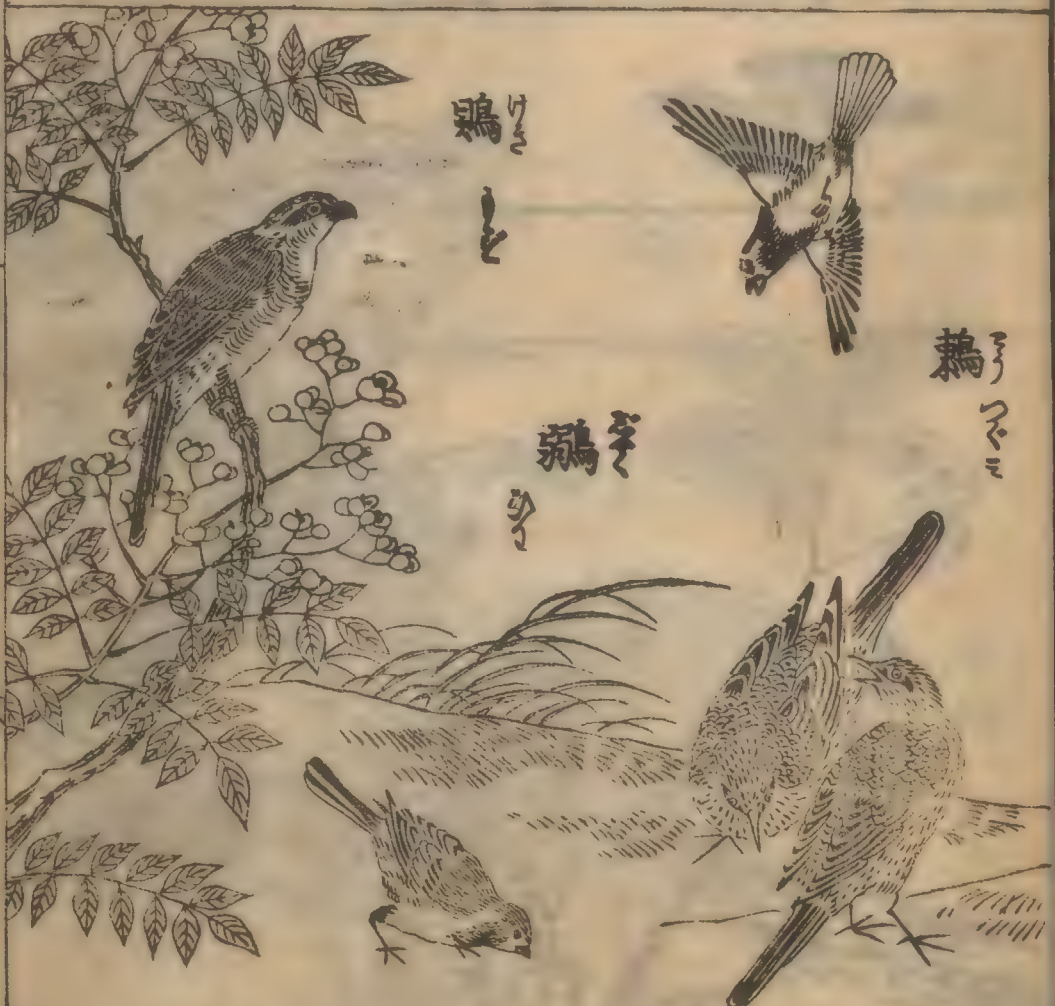 鶫
とう
つぐミ
鶸
じやく
ひわ
鶪
けき
もず